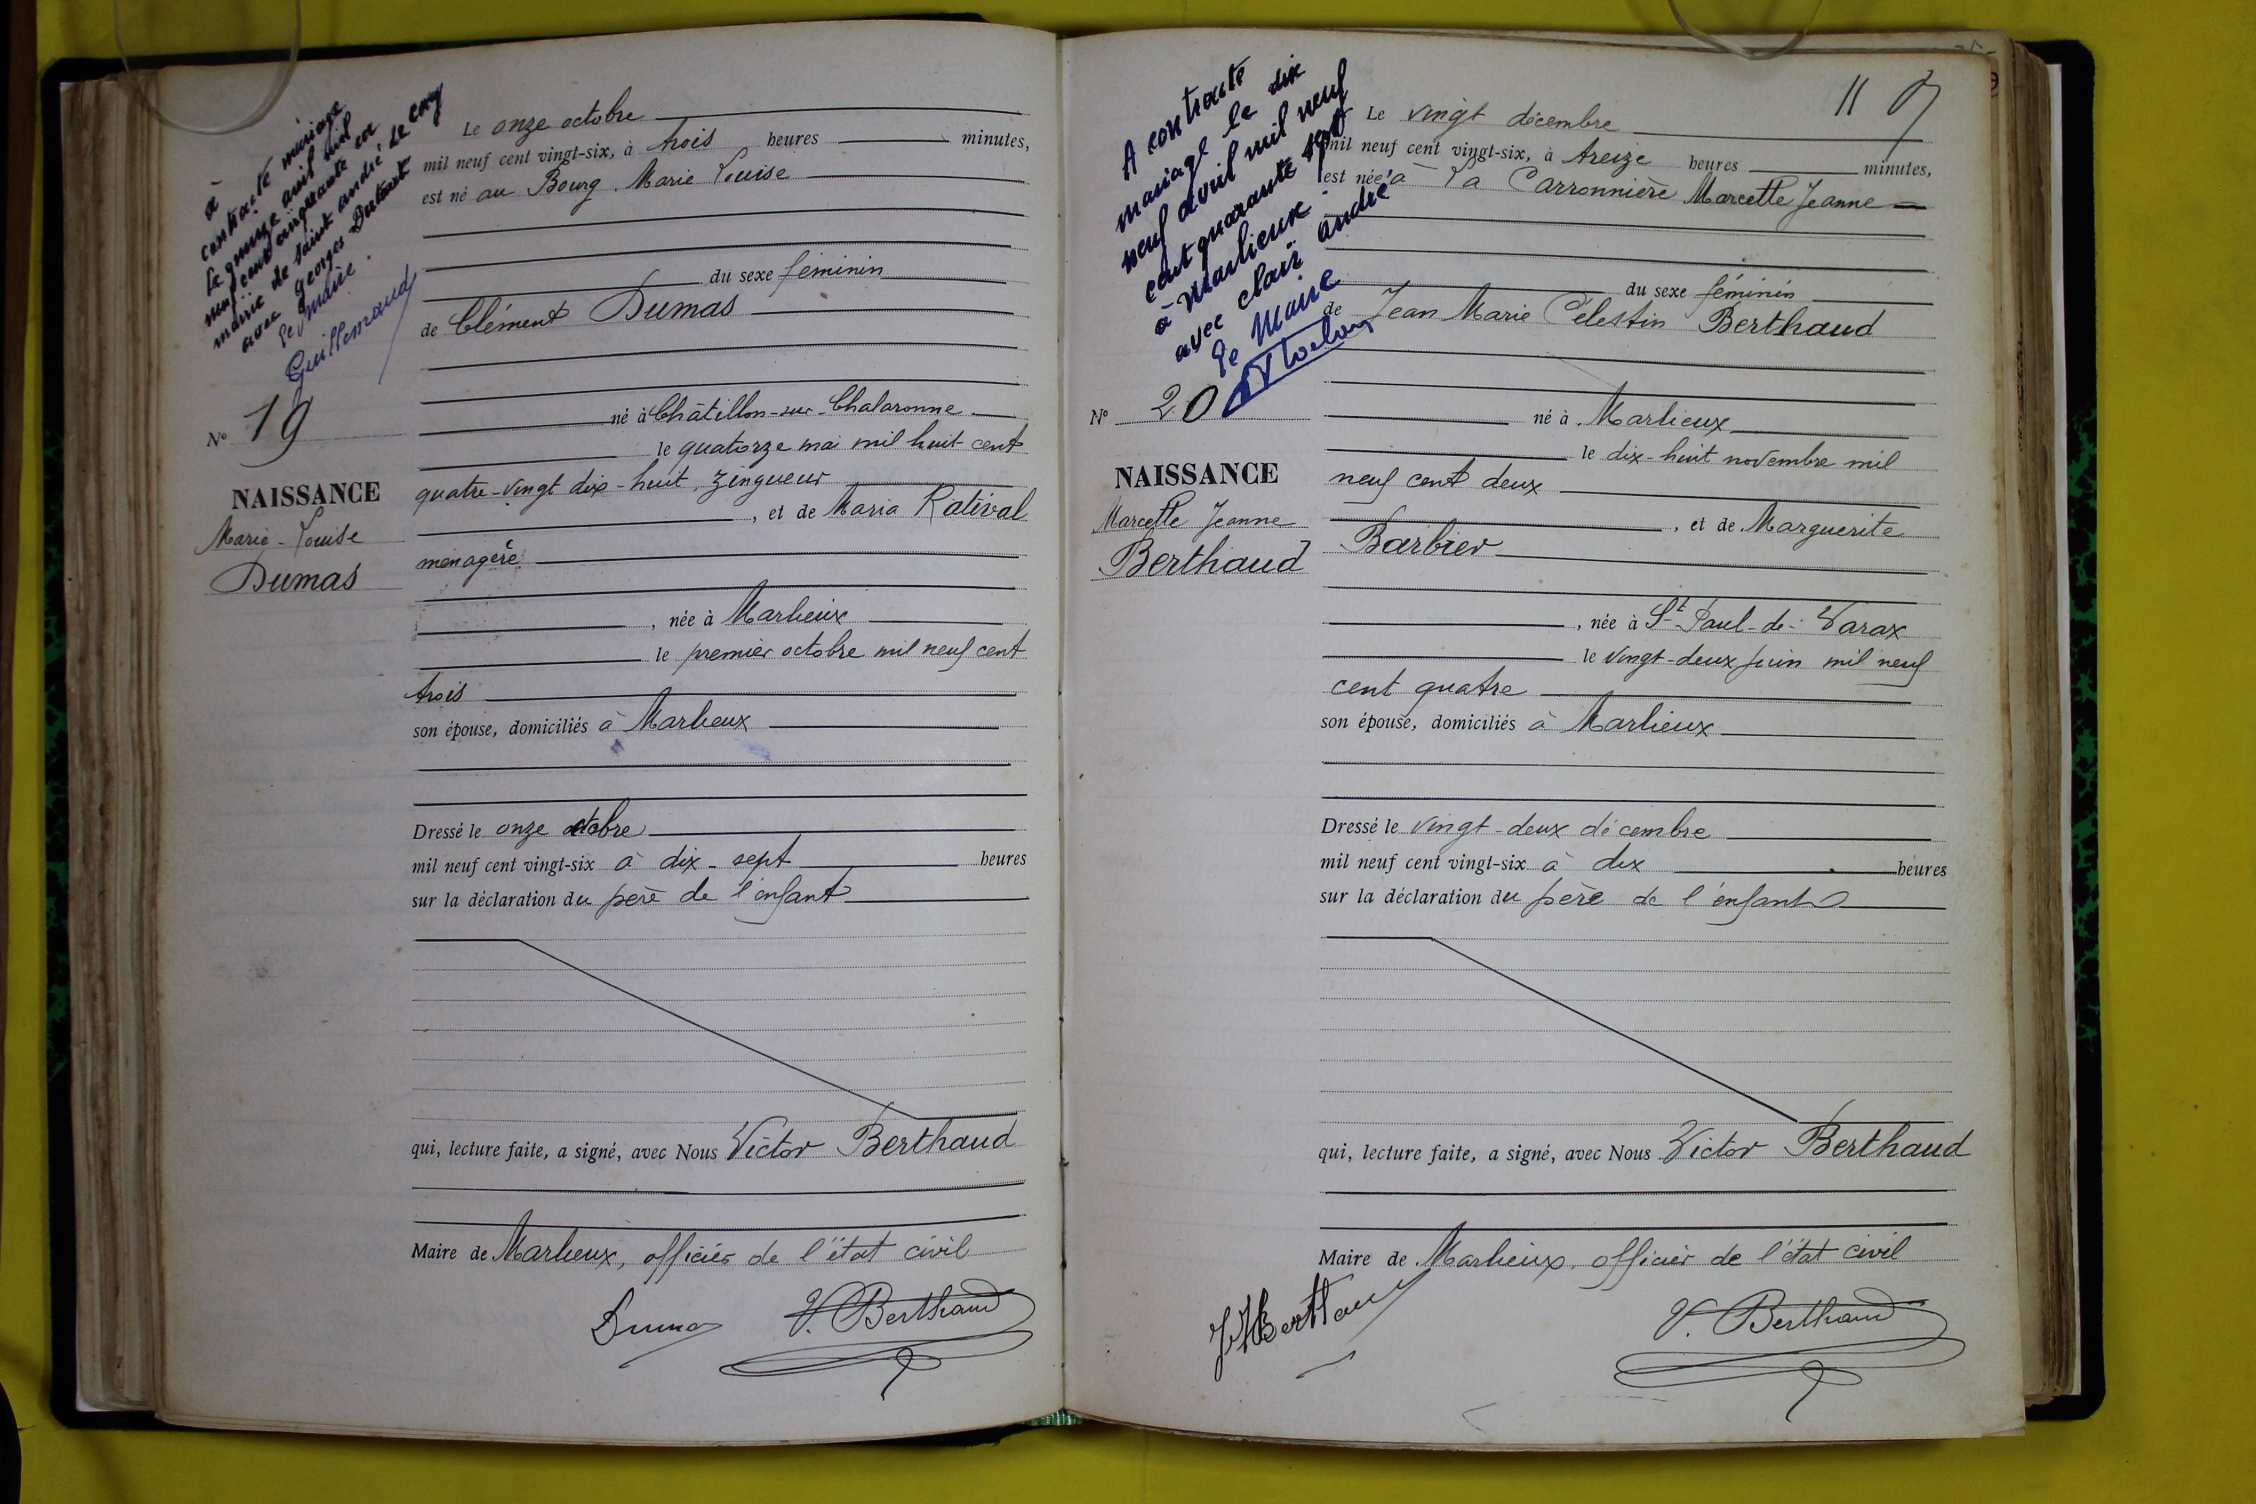 à
contracté mariage
le quinze avril mil
neuf cent cinquante en
mairie de saint andré le coq
avec georges Dutaut
le Maire.
Guillemaud
N° 19
NAISSANCE
Marie-Louise
Dumas
Le onze octobre
mil neuf cent vingt-six, à trois heures minutes,
est né au Bourg. Marie Louise
du sexe féminin
de Clément Dumas
né à Châtillon-sur-Chalaronne
le quatorze mai mil huit cent
quatre-vingt dix-huit, zingueur
, et de Maria Ratival
ménagère
, née à Marlieux
le premier octobre mil neuf cent
trois
son épouse, domiciliés à Marlieux
Dressé le onze octobre
mil neuf cent vingt-six à dix-sept heures
sur la déclaration du père de l'enfant
qui, lecture faite, a signé, avec Nous Victor Berthaud
Maire de Marlieux, officier de l'état civil
Dumas V. Berthaud
11
A contracté
mariage le dix
neuf avril mil neuf
cent quarante sept
à Marlieux
avec clair andré
le Maire
N° 20
NAISSANCE
Marcelle Jeanne
Berthaud
Le vingt décembre
mil neuf cent vingt-six, à treize heures minutes,
est née à La Carronnière Marcelle Jeanne
du sexe féminin
de Jean Marie Célestin Berthaud
né à Marlieux
le dix-huit novembre mil
neuf cent deux
, et de Marguerite
Barbier
, née à St-Paul-de-Varax
le vingt-deux juin mil neuf
cent quatre
son épouse, domiciliés à Marlieux
Dressé le vingt-deux décembre
mil neuf cent vingt-six à dix heures
sur la déclaration du père de l'enfant
qui, lecture faite, a signé, avec Nous Victor Berthaud
Maire de Marlieux, officier de l'état civil
JMBerthaud V. Berthaud